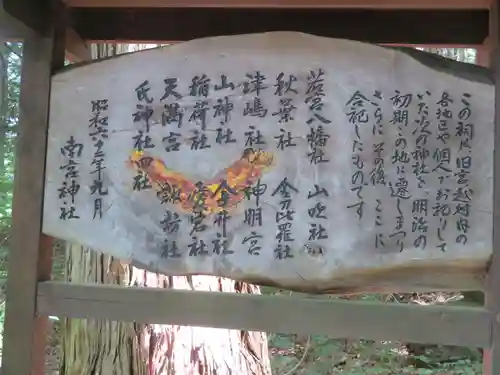 この祠は、旧宮越村内の
各地区や個人でお祀りして
いた次の神社を、明治の
初期、この地に遷しまつり
さらに、その後、ここに
合祀したものです
若宮八幡社 山吹社
秋葉社 金刀比羅社
津嶋社 神明宮
山神社 金井社
稲荷社 愛宕社
天満宮 諏訪社
氏神社四社
昭和六十年九月
南宮神社